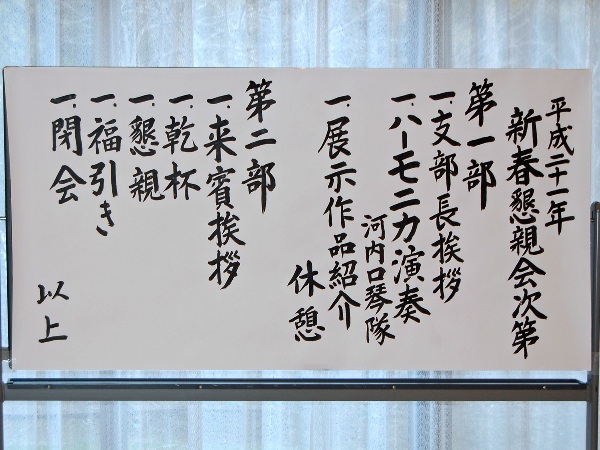 平成二十一年
新春懇親会次第
第一部
一、支部長挨拶
一、ハーモニカ演奏
河内口琴隊
一、展示作品紹介
休憩
第二部
一、来賓挨拶
一、乾杯
一、懇親
一、福引き
一、閉会
以上